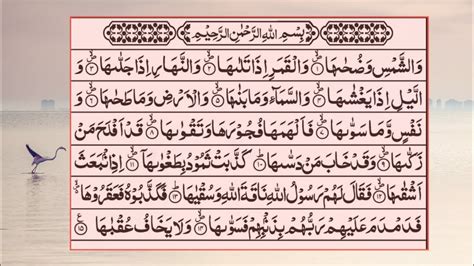 بِسْمِ اللهِ الرَّحْمٰنِ الرَّحِيْمِ
وَالشَّمْسِ وَضُحٰىهَا ۝١ وَالْقَمَرِ اِذَا تَلٰىهَا ۝٢ وَالنَّهَارِ اِذَا جَلّٰىهَا ۝٣ وَ
الَّيْلِ اِذَا يَغْشٰىهَا ۝٤ وَالسَّمَآءِ وَمَا بَنٰىهَا ۝٥ وَالْاَرْضِ وَمَا طَحٰىهَا ۝٦ وَ
نَفْسٍ وَّمَا سَوّٰىهَا ۝٧ فَاَلْهَمَهَا فُجُوْرَهَا وَتَقْوٰىهَا ۝٨ قَدْ اَفْلَحَ مَنْ
زَكّٰىهَا ۝٩ وَقَدْ خَابَ مَنْ دَسّٰىهَا ۝١٠ كَذَّبَتْ ثَمُوْدُ بِطَغْوٰىهَا ۝١١ اِذِ انْۢبَعَثَ
اَشْقٰىهَا ۝١٢ فَقَالَ لَهُمْ رَسُوْلُ اللهِ نَاقَةَ اللهِ وَسُقْيٰهَا ۝١٣ فَكَذَّبُوْهُ فَعَقَرُوْهَا
فَدَمْدَمَ عَلَيْهِمْ رَبُّهُمْ بِذَنْۢبِهِمْ فَسَوّٰىهَا ۝١٤ وَلَا يَخَافُ عُقْبٰهَا ۝١٥